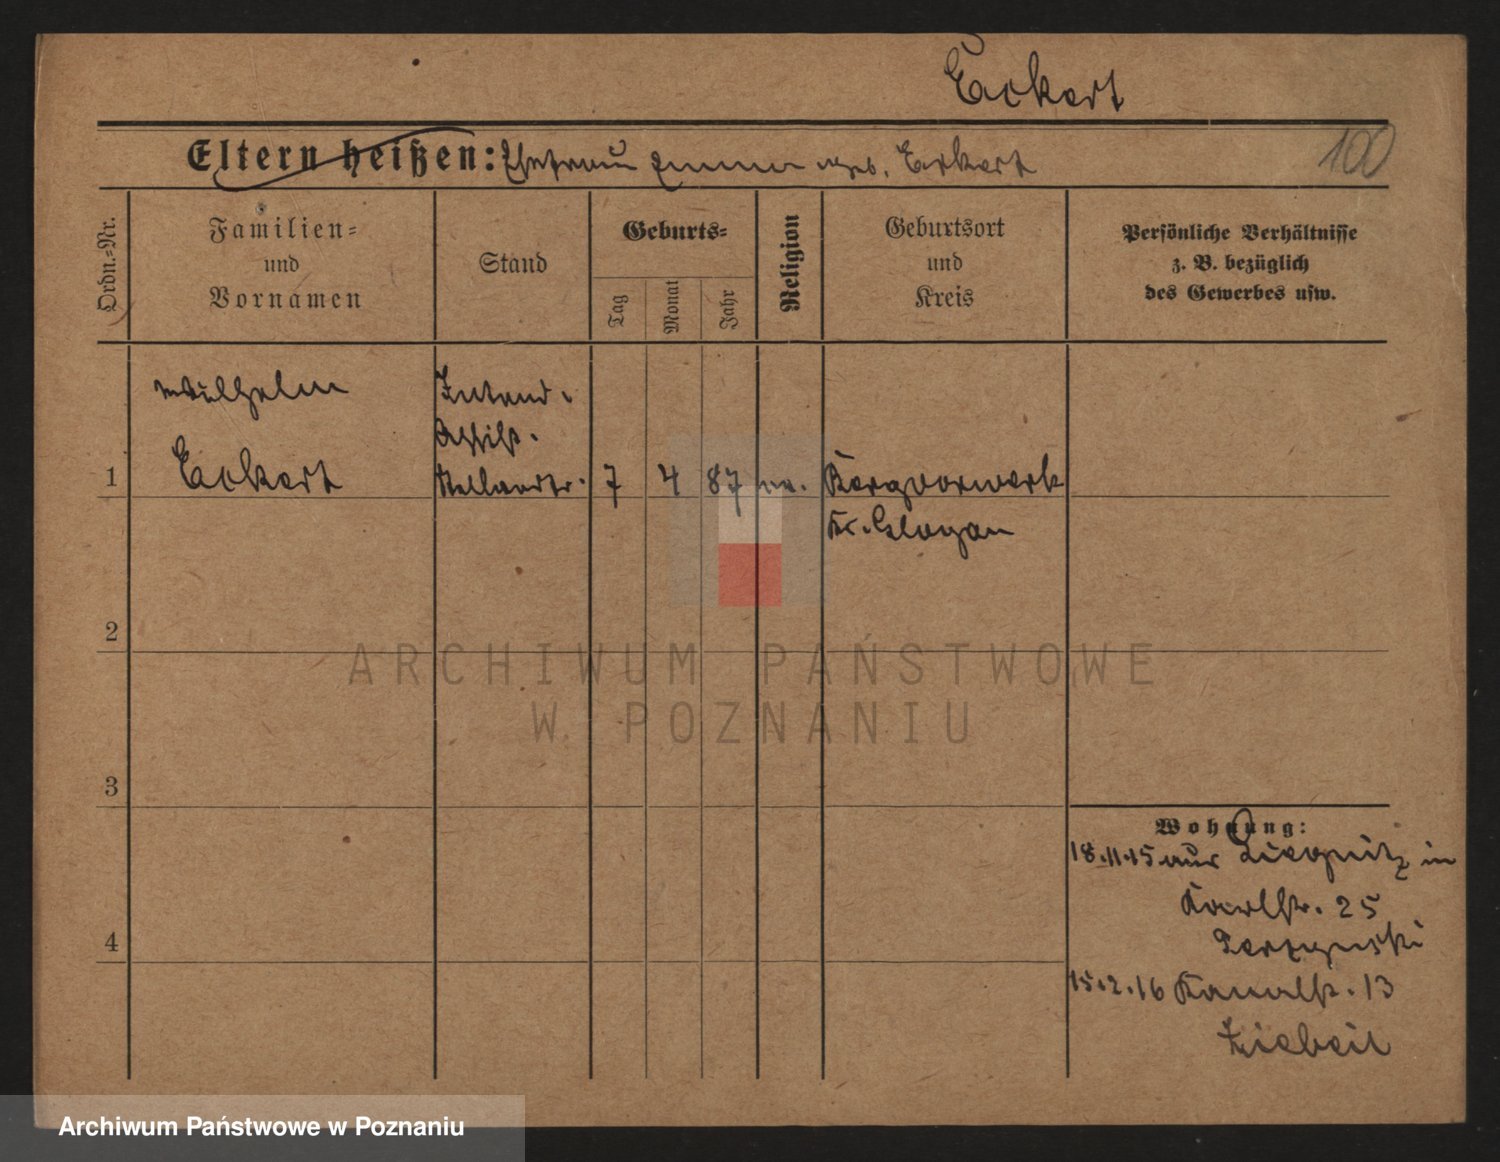 Eckert
Eltern heißen: Ehefrau Emma geb. Eckert
100
Ordn.-Nr.
Familien=
und
Vornamen
Stand
Geburts=
Tag
Monat
Jahr
Religion
Geburtsort
und
Kreis
Persönliche Verhältnisse
z. B. bezüglich
des Gewerbes usw.
Wilhelm
Eckert
Intend.
Assist.
Stellvertr.
1
7
4
87
ev.
Bergvorwerk
Kr. Glogau
2
3
4
Wohnung:
18.11.15 aus Liegnitz in
Karlstr. 25
15.2.16 Kanalstr. 13
ARCHIWUM PAŃSTWOWE
W POZNANIU
Archiwum Państwowe w Poznaniu